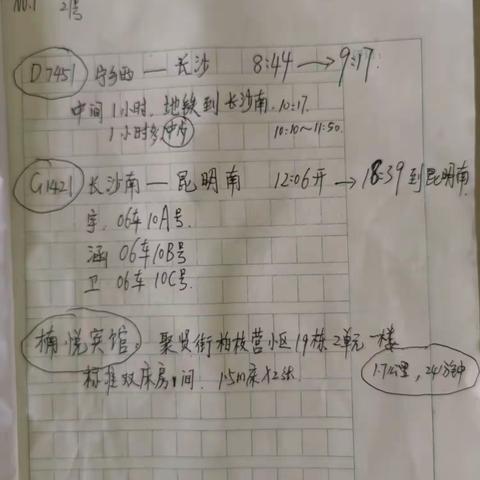 NO.1 21号
D7451 宁乡西 — 长沙 8:44 → 9:17.
中间1小时. 地铁到长沙南. 10:17.
1小时多 10:10~11:50.
G1421 长沙南 — 昆明南 12:06开 → 18:39到昆明南
宇. 06车10A号.
涵 06车10B号
卫 06车10C号.
楠·悦宾馆。聚贤街柏枝营小区19栋2单元一楼
标准双床房1间. 1.5m床×2张.
1.7公里,24分钟